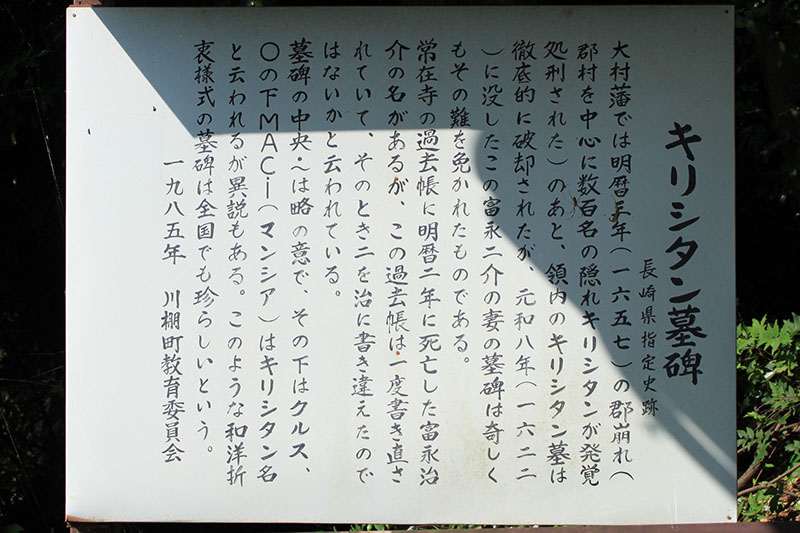 キリシタン墓碑
長崎県指定史跡
大村藩では明暦三年(一六五七)の郡崩れ(
郡村を中心に数百名の隠れキリシタンが発覚
処刑された)のあと、領内のキリシタン墓は
徹底的に破却されたが、元和八年(一六二二
)に没したこの富永二介の妻の墓碑は奇しく
もその難を免かれたものである。
常在寺の過去帳に明暦二年に死亡した富永治
介の名があるが、この過去帳は一度書き直さ
れていて、そのとき二を治に書き違えたので
はないかと云われている。
墓碑の中央・〜は略の意で、その下はクルス、
〇の下MACi(マンシア)はキリシタン名
と云われるが異説もある。このような和洋折
衷様式の墓碑は全国でも珍らしいという。
一九八五年 川棚町教育委員会